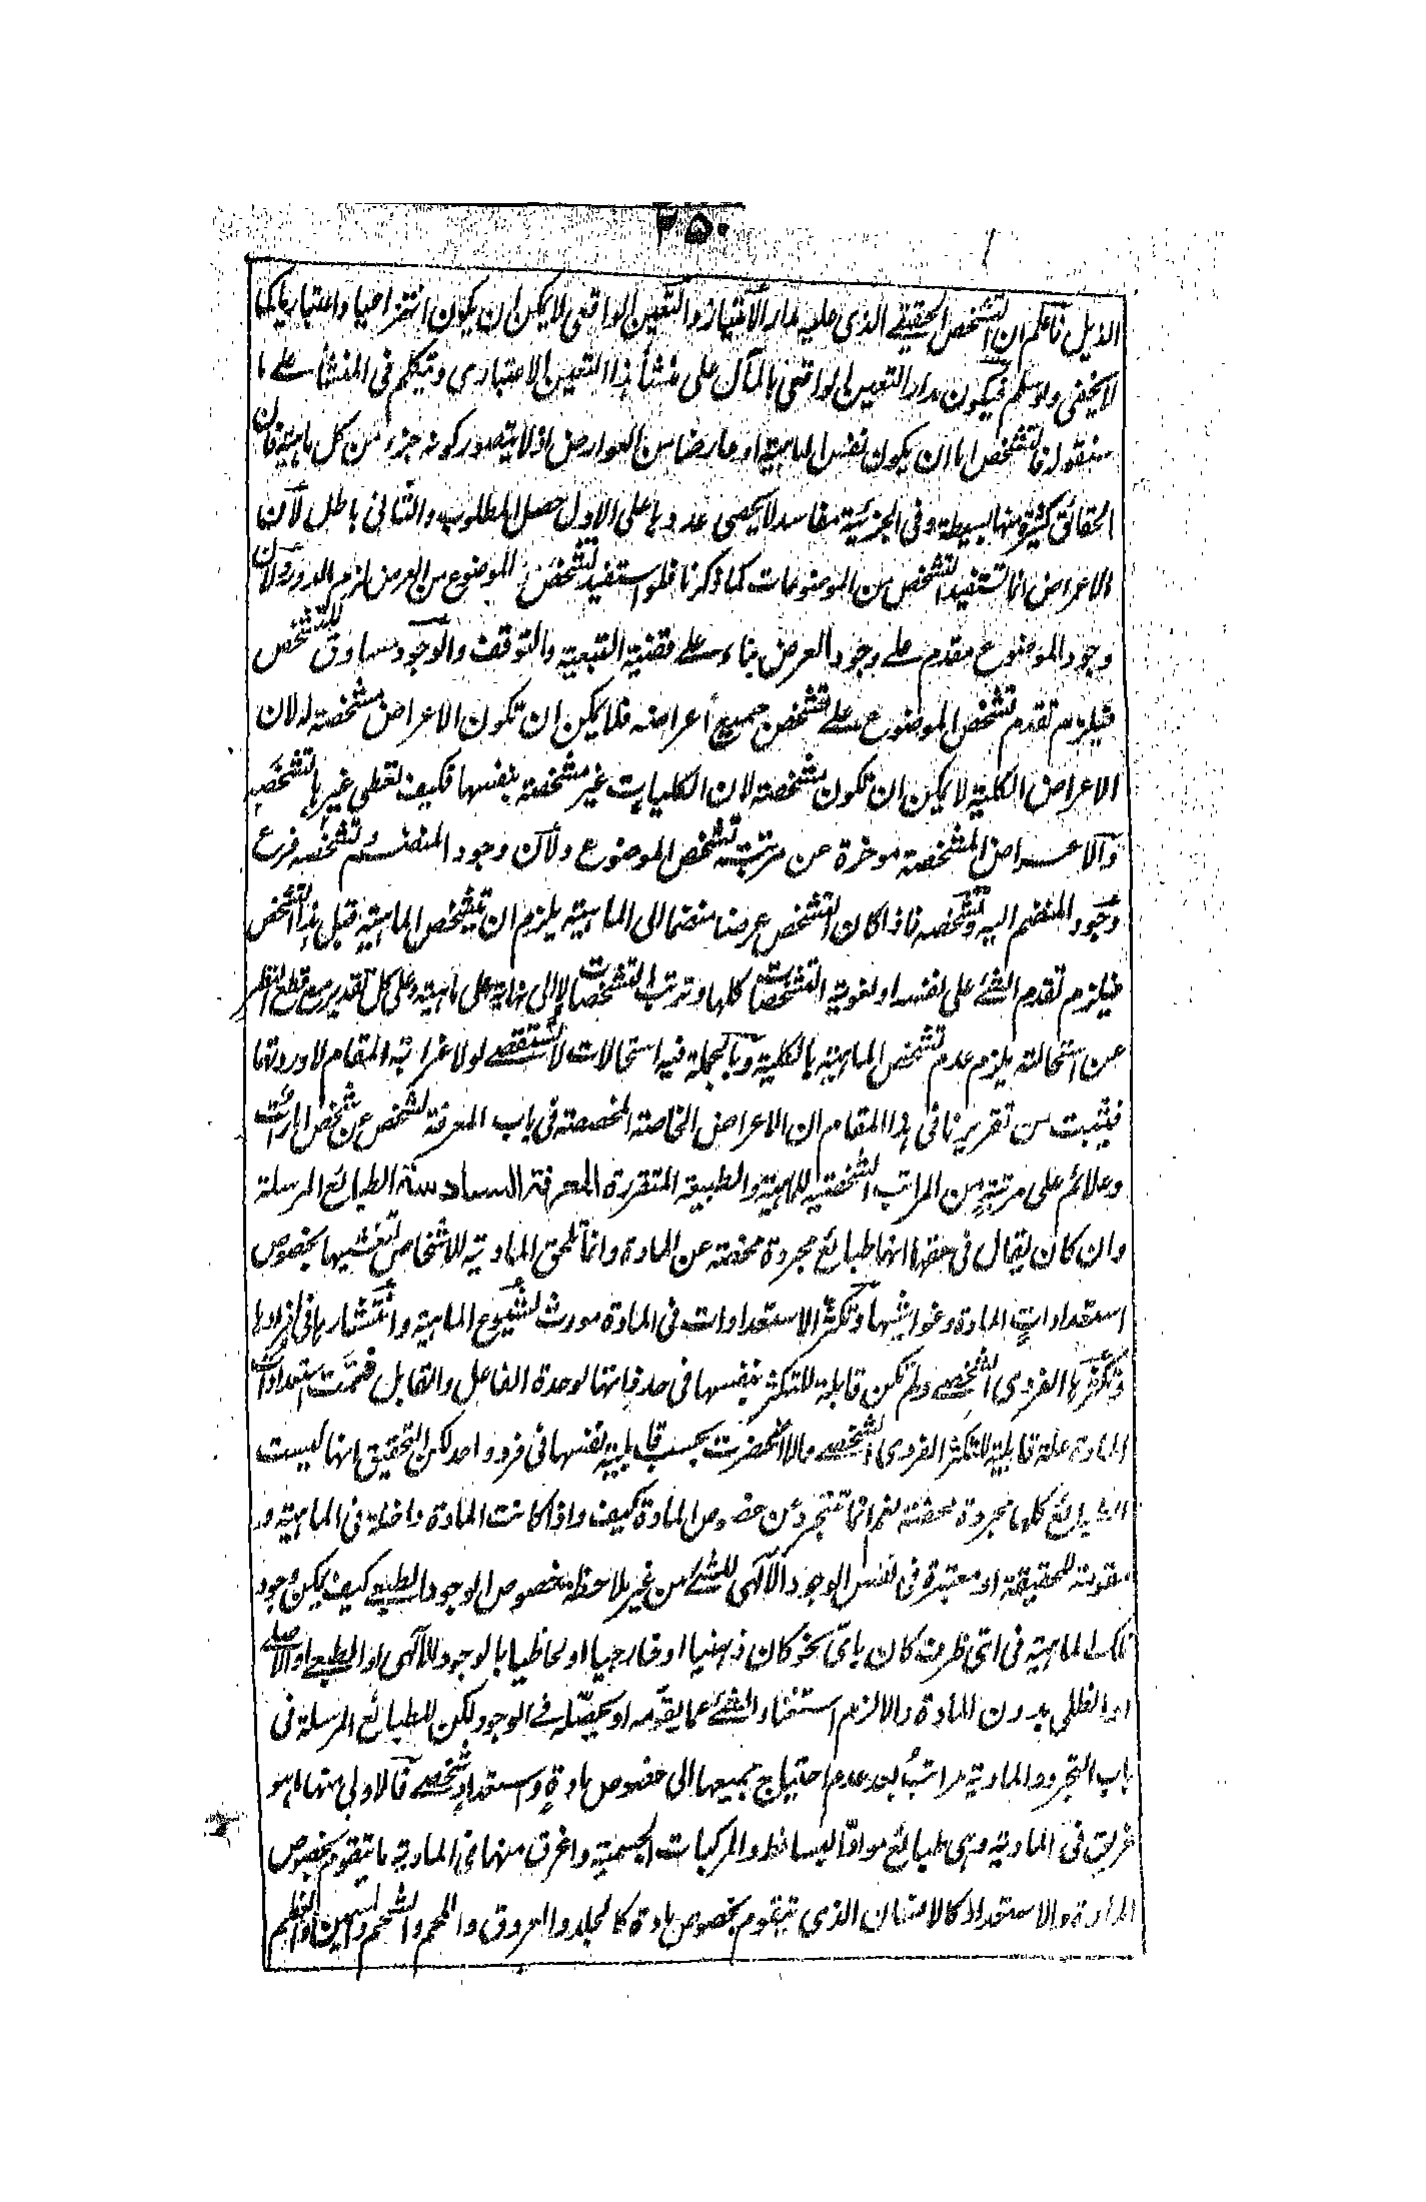 ٢٥٠
الذيل فاعلم ان التشخص الحقيقي الذي عليه مدار الامتياز والتعين الواقعي لا يمكن ان يكون انتزاعيا واعتباريا كما
لا يخفى ولو سلم فيكون مدار التعين الواقعي بالمآل على منشأ هذا التعين الاعتباري ويتكلم في المنشأ على ما
سنقوله فالتشخص اما ان يكون نفس الماهية او عارضا من العوارض اذ لا يتصور كونه جزء من كل ماهية فان
الحقائق كثيرة منها بسيطة وفي الجزئية مفاسد لا يحصى عددها على الاول حصل المطلوب والثاني باطل لان
الاعراض انما تستفيد التشخص من الموضوعات كما ذكرنا فلو استفيد تشخص الموضوع من العرض لزم الدور ولان
وجود الموضوع مقدم على وجود العرض بناء على قضية التبعية والتوقف والوجود مساوق للتشخص
فيلزم تقدم تشخص الموضوع على تشخص جميع أعراضه فلا يمكن ان تكون الاعراض مشخصة له لان
الاعراض الكلية لا يمكن ان تكون مشخصة لان الكليات غير مشخصة بنفسها فكيف تعطي غيرها تشخصه
والاعراض المشخصة موخرة عن مرتبة تشخص الموضوع ولان وجود المنضم وتشخصه فرع
وجود المنضم اليه وتشخصه فاذا كان التشخص عرضا منضما الى الماهية يلزم ان تتشخص الماهية قبل هذا التشخص
فيلزم تقدم الشئ على نفسه او لغوية التشخصات كلها وترتب التشخصات لا الى نهاية على ماهية وعلى كل تقدير مع قطع النظر
عن استحالته يلزم عدم تشخص الماهية بالكلية وبالجملة فيه استحالات لا تستقصى لولا غرابة المقام لاوردتها
فثبت من تقريرنا في هذا المقام ان الاعراض الخاصة المخصصة في باب المعرفة لشخص عن شخص امارات
وعلائم على مرتبة من المراتب الشخصية للماهية والطبيعة المتقررة المعرفة السادسة الطبائع المرسلة
وان كان يقال في حقها انها طبائع مجردة محضة عن المادة وانما تلحق المادية للاشخاص لتغشيها بخصوص
استعدادات المادة وغواشيها وتكثر الاستعدادات في المادة مورث لشيوع الماهية وانتشارها في افرادها
وتكثرها الفردي الشخصي ولم تكن قابلة للتكثر بنفسها في حد ذاتها لوحدة الفاعل والقابل فتمت استعدادات
المادة علة قابلية للتكثر الفردي الشخصي والا انحصرت بحسب قابلية نفسها في فرد واحد لكن التحقيق انها ليست
الطبائع كلها مجردة محضة نعم انما تتجرد عن خصوص المادة كيف واذا كانت المادة داخلة في الماهية و
مقومة للحقيقة او معتبرة في نفس الوجود الآلهي للشئ من غير ملاحظة خصوص الوجود الطبيعي كيف يمكن وجود
تلك الماهية في اي ظرف كان باي نحو كان ذهنيا او خارجيا او لحاظيا بالوجود الالهي او الطبيعي او الاصلي
او الظلي بدون المادة والا لزم استغناء الشئ عما يقومه او يحصله في الوجود لكن للطبائع المرسلة في
باب التجرد والمادية مراتب بعد عدم احتياج جميعها الى خصوص مادة واستعداد شخصي فالاولى منها ما هو
غريق في المادية وهي طبائع مواد البسائط والمركبات الجسمية واغرق منها في المادية ما يتقوم بخصوص
المادة والاستعداد كالانسان الذي يتقوم بخصوص مادة كالجلد والعروق واللحم والشحم